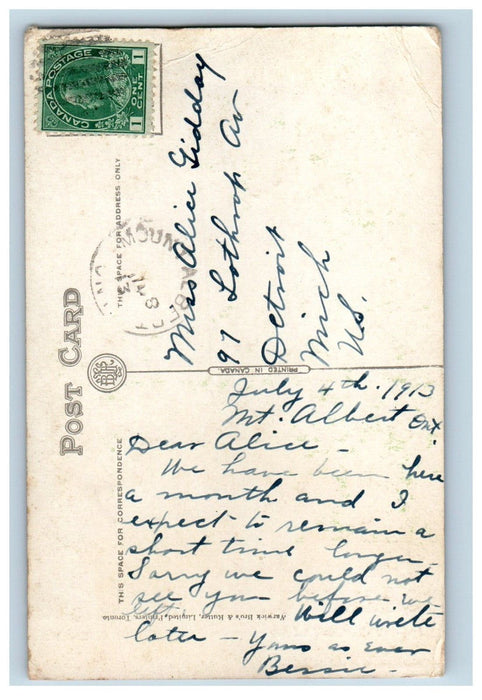 CANADA POSTAGE
1 ONE CENT 1
MOUNT ALBERT
ONT
POST CARD
THIS SPACE FOR ADDRESS ONLY
Miss Alice Gidday
97 Lothrop Av
Detroit
Mich
US.
PRINTED IN CANADA
THIS SPACE FOR CORRESPONDENCE
July 4th. 1913
Mt. Albert Ont
Dear Alice -
We have been here
a month and I
expect to remain a
short time longer
Sorry we could not
see you before we
left. Will write
later - Yours as ever
Bessie -
Warwick Bro's & Rutter, Limited, Printers, Toronto